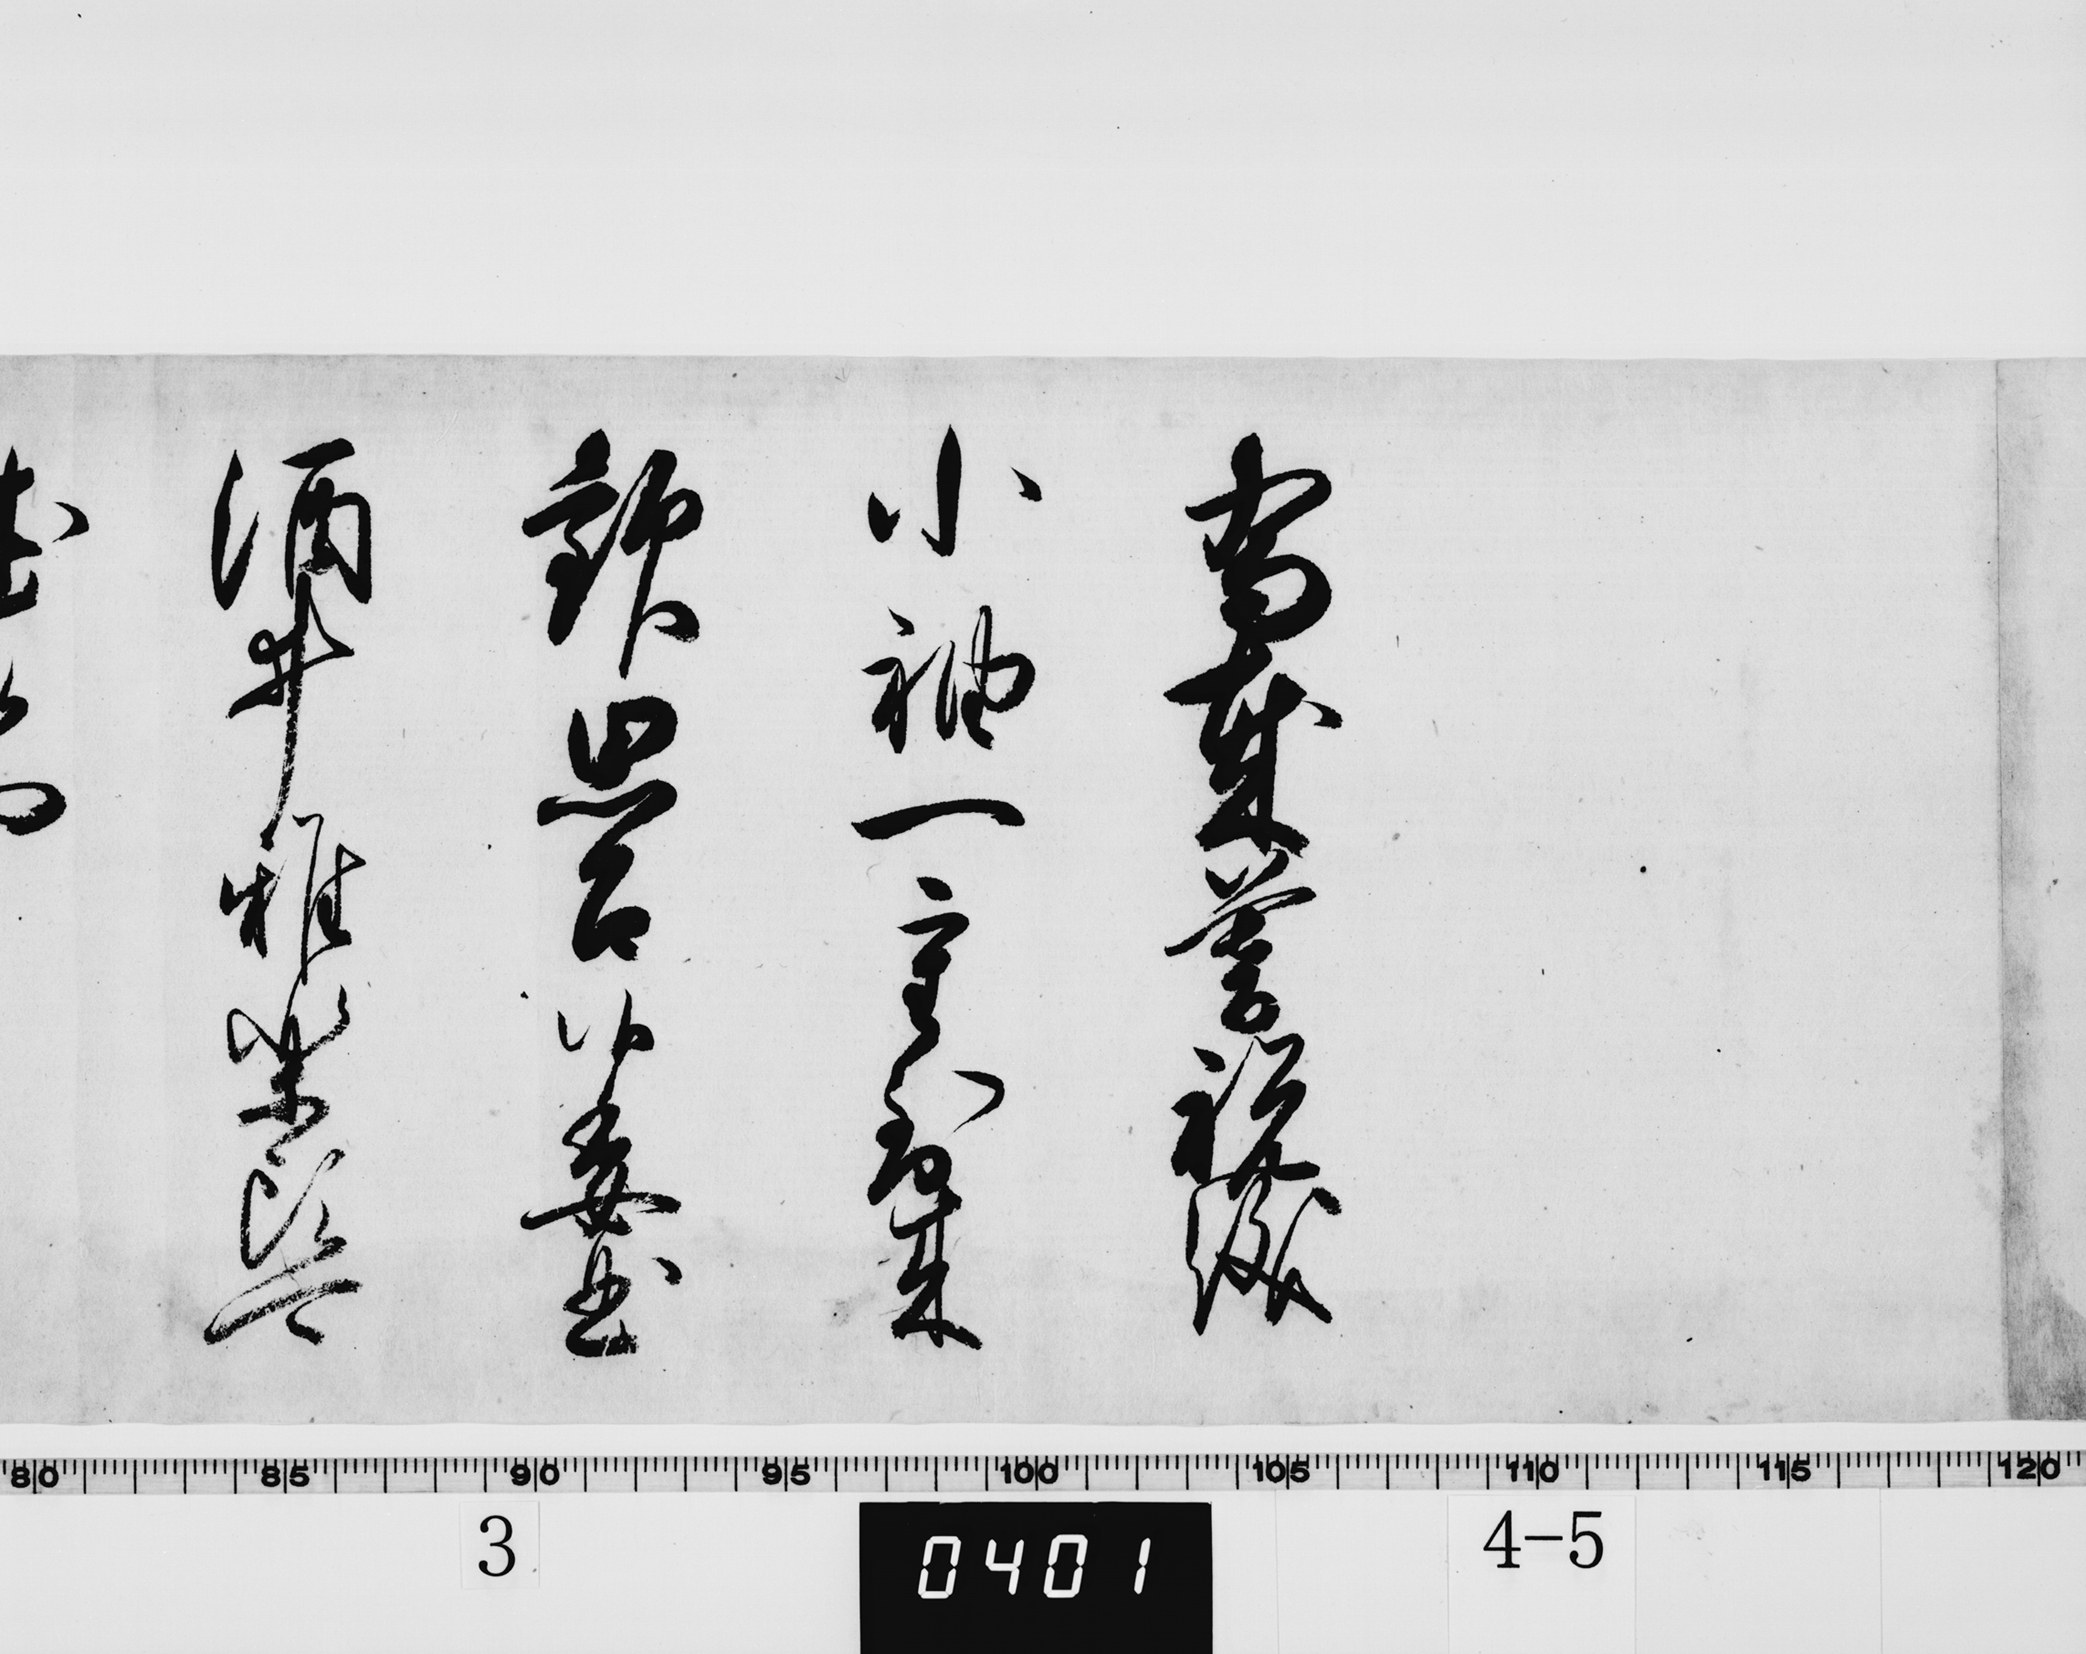 當歳暮祝儀
小袖一重到来
歓思召候委曲
酒井雅楽頭
80 85 90 95 100 105 110 115 120
3 0401 4-5